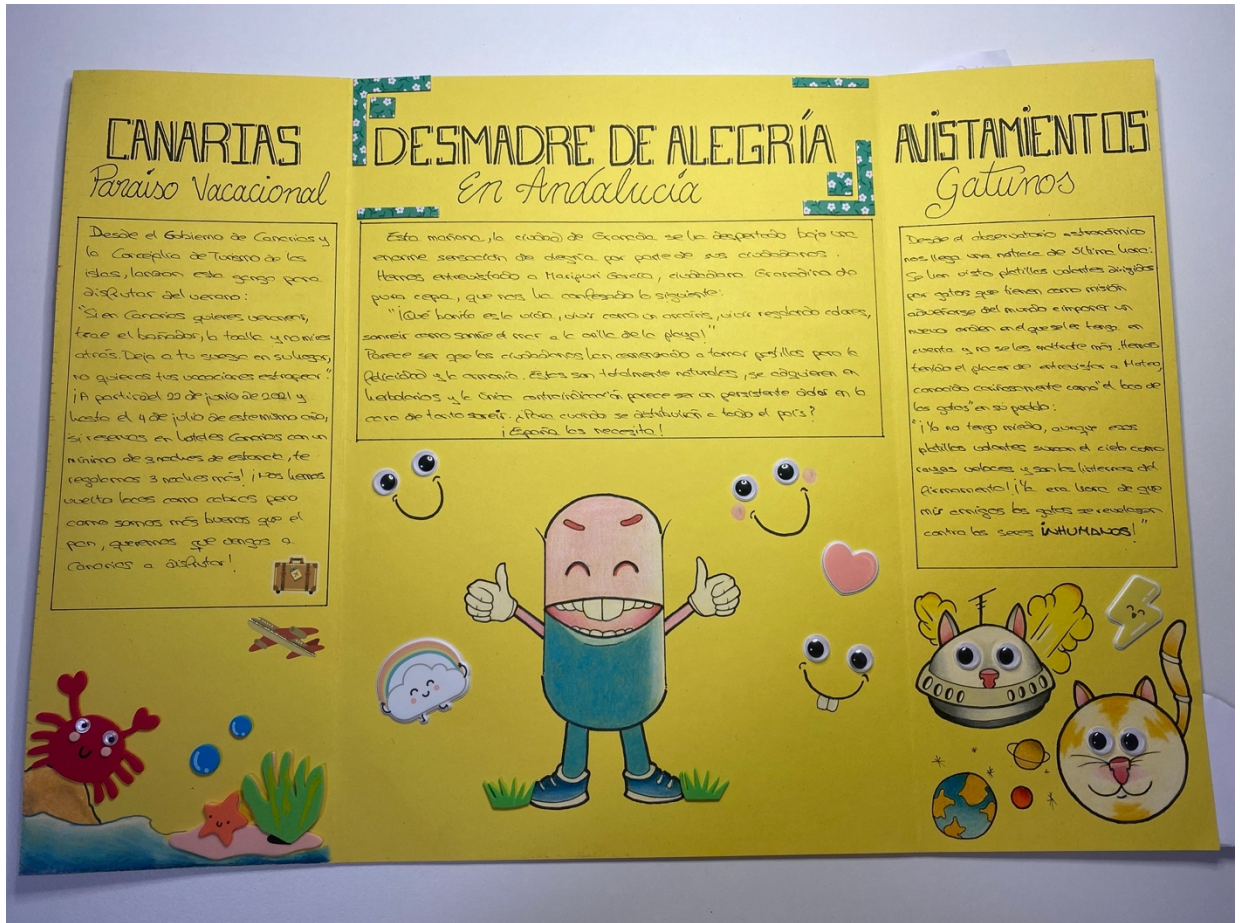 CANARIAS
Paraíso Vacacional
Desde el Gobierno de Canarias y
la Concejalía de Turismo de las
islas, lanzan esta ganga para
disfrutar del verano:
"Si en Canarias quieres veranear,
trae el bañador, la toalla y no mires
atrás. Deja a tu suegra en su hogar,
no quieras tus vacaciones estropear."
¡A partir del 22 de junio de 2021 y
hasta el 4 de julio de este mismo año,
si reservas en hoteles Canarios con un
mínimo de 3 noches de estancia, te
regalamos 3 noches más! ¡Nos hemos
vuelto locos como cabras pero
como somos más buenos que el
pan, queremos que vengas a
Canarias a disfrutar!
DESMADRE DE ALEGRÍA
En Andalucía
Esta mañana, la ciudad de Granada se ha despertado bajo una
enorme sensación de alegría por parte de sus ciudadanos.
Hemos entrevistado a Maripuri García, ciudadana Granadina de
pura cepa, que nos ha confesado lo siguiente:
"¡Qué bonita es la vida, vivir como un arcoíris, vivir regalando colores,
sonreír como sonríe el mar a la orilla de la playa!"
Parece ser que los ciudadanos han comenzado a tomar pastillas para la
felicidad y la armonía. Estas son totalmente naturales, se adquieren en
herbolarios y la única contraindicación parece ser un persistente dolor en la
cara de tanto sonreír. ¿Para cuándo se distribuirán a todo el país?
¡España las necesita!
AVISTAMIENTOS
Gatunos
Desde el observatorio astronómico
nos llega una noticia de última hora:
Se han visto platillos volantes dirigidos
por gatos que tienen como misión
adueñarse del mundo e imponer un
nuevo orden en el que se les tenga en
cuenta y no se les maltrate más. Hemos
tenido el placer de entrevistar a Mateo,
conocido cariñosamente como "el loco de
los gatos" en su pueblo:
"¡Yo no tengo miedo, aunque esos
platillos volantes surcan el cielo como
rayos veloces y son las linternas del
firmamento! ¡Ya era hora de que
mis amigos los gatos se revelasen
contra los seres INHUMANOS!"